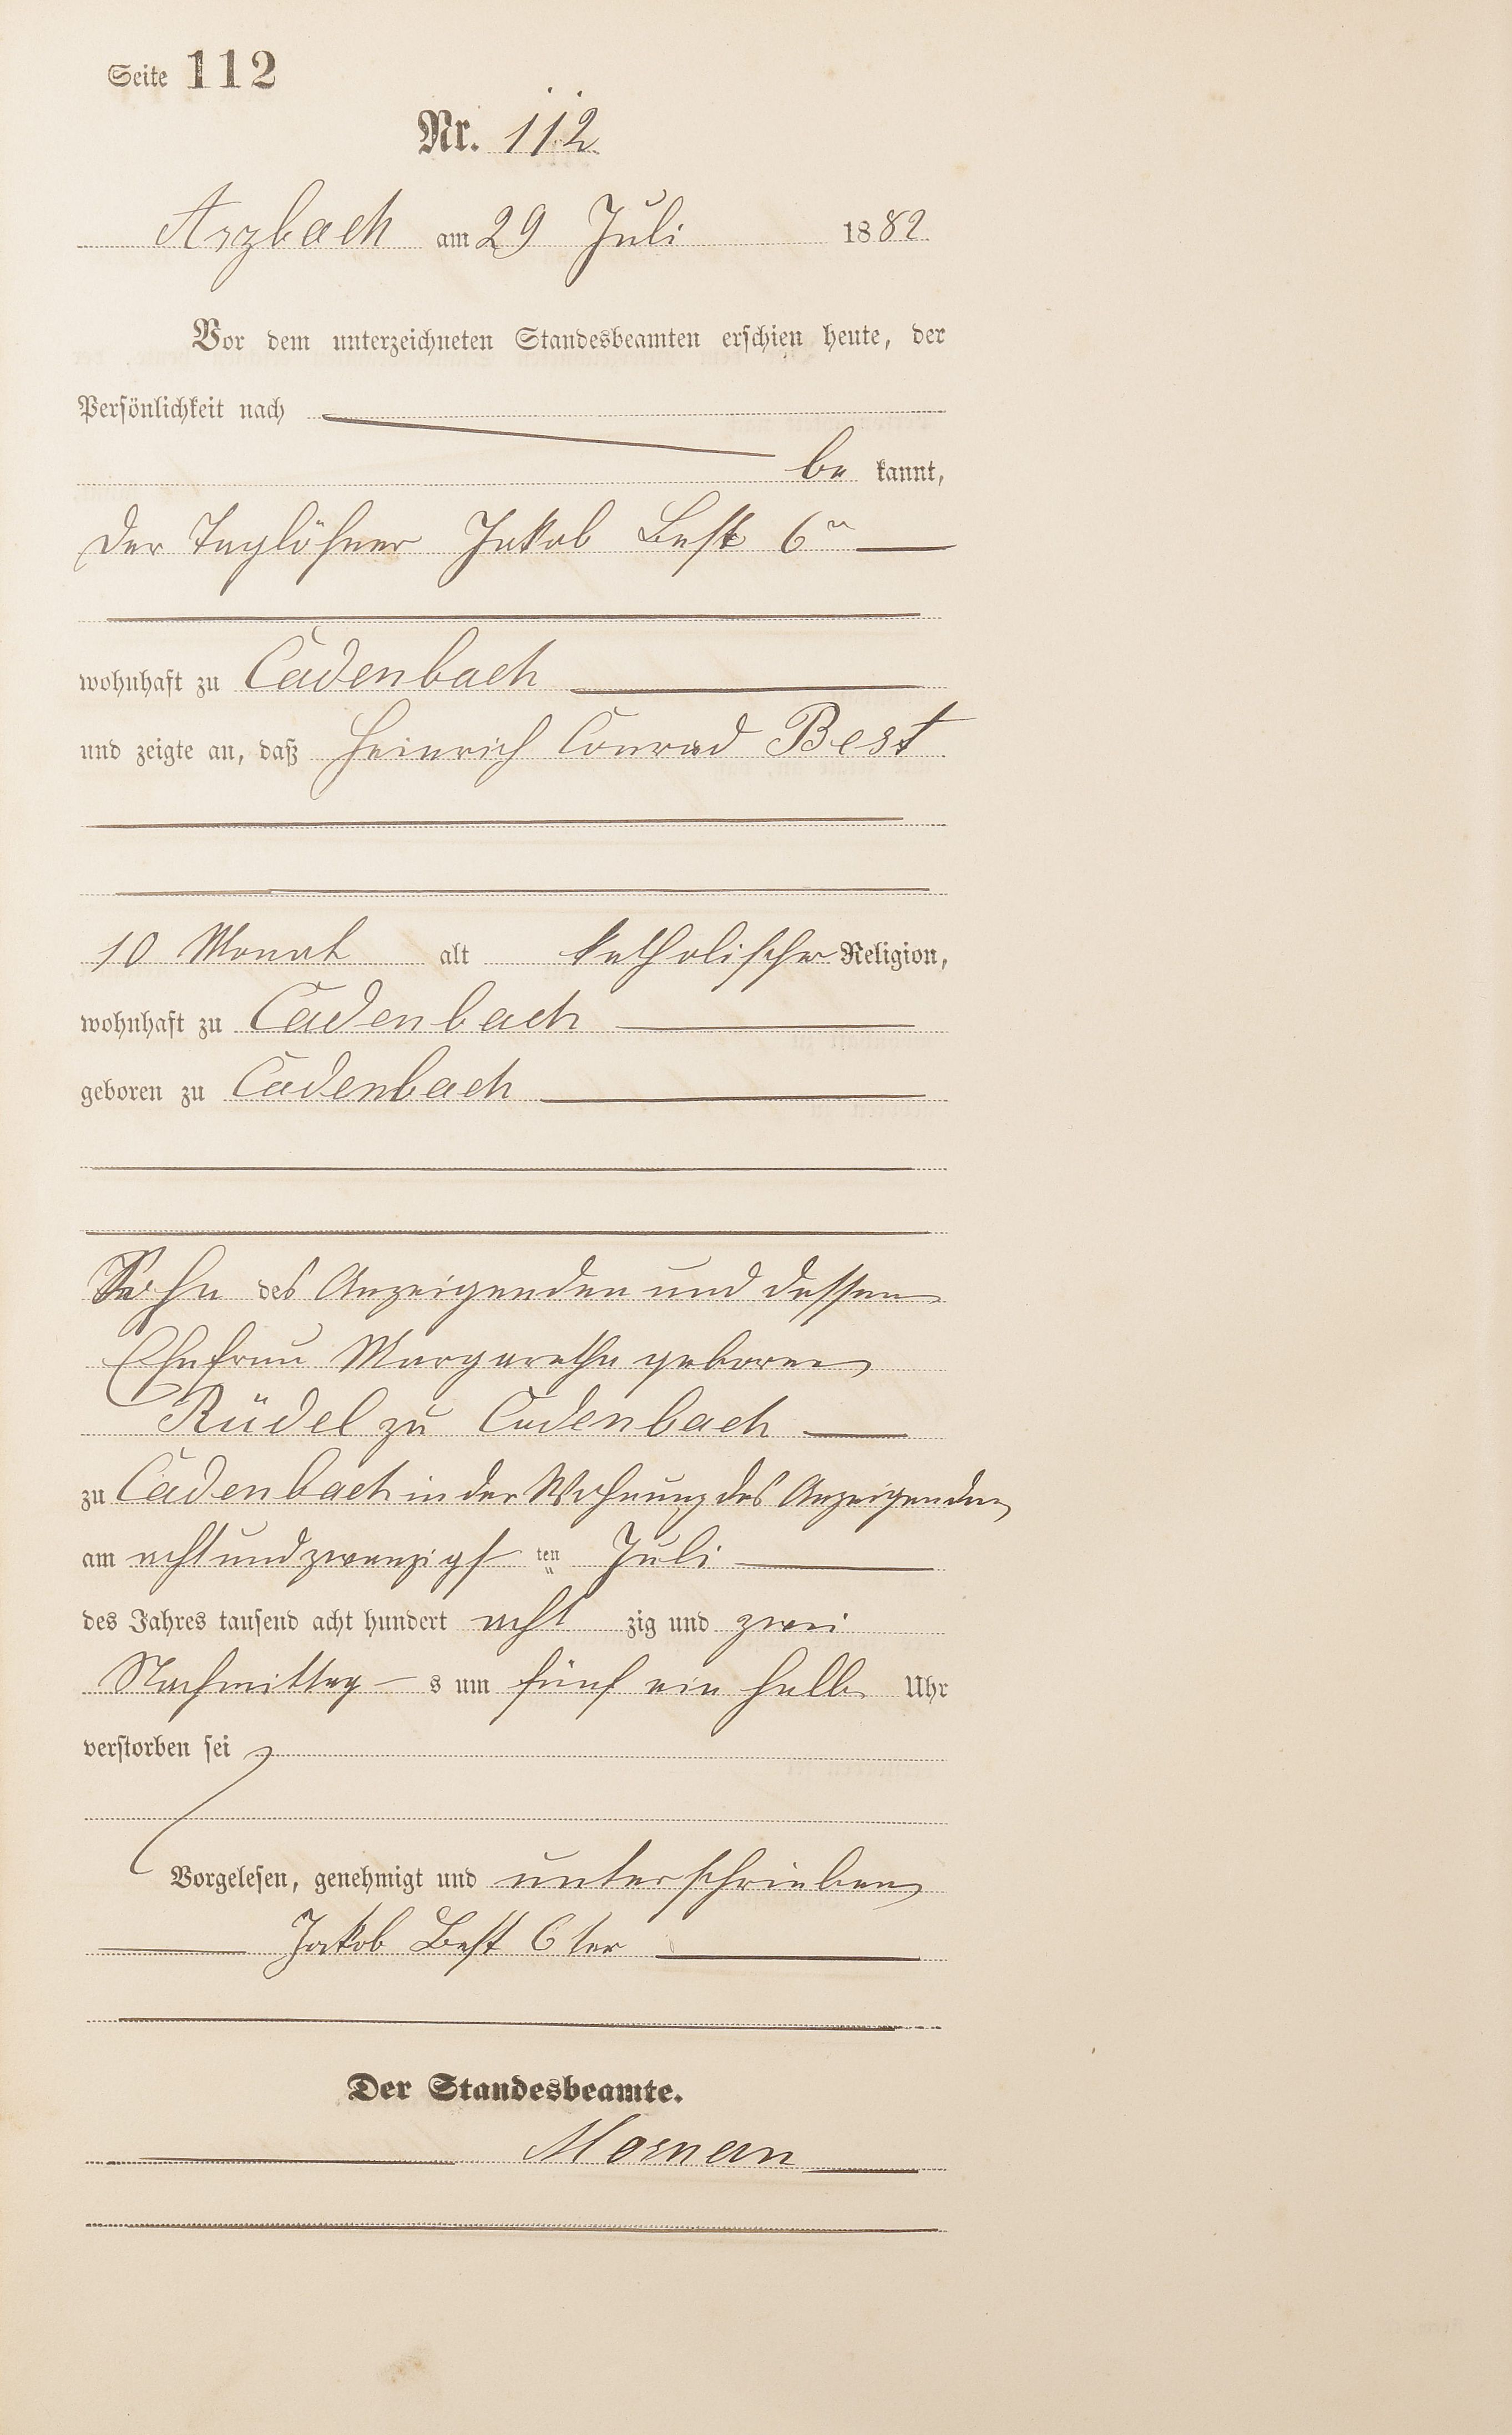 Seite 112
Nr. 112
Arzbach am 29 Juli 1882
Vor dem unterzeichneten Standesbeamten erschien heute, der
Persönlichkeit nach
be kannt,
der Taglöhner Jakob Best 6r
wohnhaft zu Cadenbach
und zeigte an, daß Heinrich Conrad Best
10 Monat alt katholischer Religion,
wohnhaft zu Cadenbach
geboren zu Cadenbach
Sohn des Anzeigenden und dessen
Ehefrau Margaretha geboren
Rüdel zu Cadenbach
zu Cadenbach in der Wohnung des Anzeigenden
am achtundzwanzigsten Juli
des Jahres tausend acht hundert achtzig und zwei
Nachmittags um fünf ein halb Uhr
verstorben sei
Vorgelesen, genehmigt und unterschrieben
Jakob Best 6ter
Der Standesbeamte.